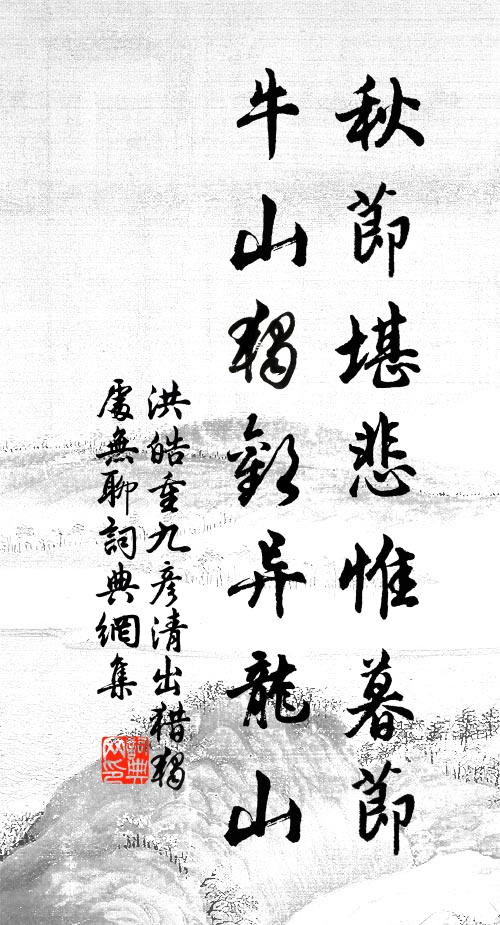 秋節堪悲惟暮節
牛山獨歎异龍山
洪皓重九彥清出獵獨
處無聊詞典網集